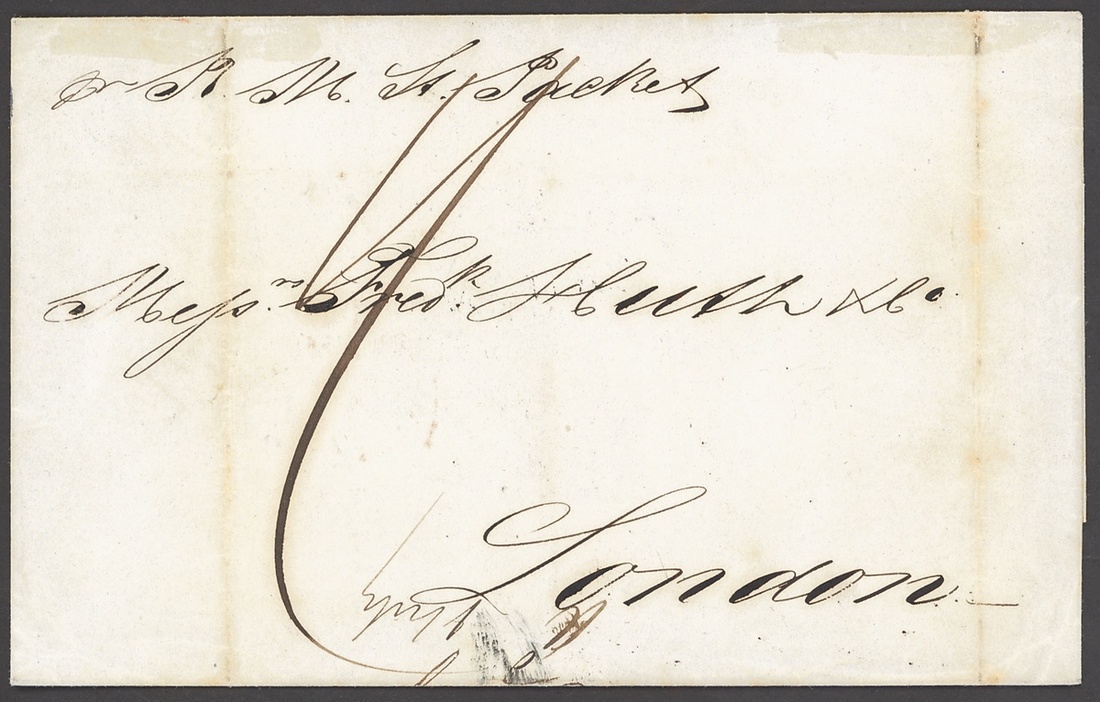 pr R. M. St. Packet
Messrs. Fredk. Huth & Co.
London